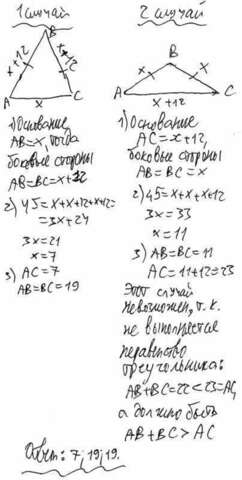 1 случай
B
x+12
x+12
A
x
C
1) Основание
AB=x, тогда
боковые стороны
AB=BC=x+12
2) 45=x+x+12+x+12=
=3x+24
3x=21
x=7
3) AC=7
AB=BC=19
2 случай
B
x
x
A
x+12
C
1) Основание
AC=x+12,
боковые стороны
AB=BC=x
2) 45=x+x+x+12
3x=33
x=11
3) AB=BC=11
AC=11+12=23
Этот случай
невозможен, т.к.
не выполняется
неравенство
треугольника:
AB+BC=22<23=AC,
а должно быть
AB+BC>AC
Ответ: 7; 19; 19.